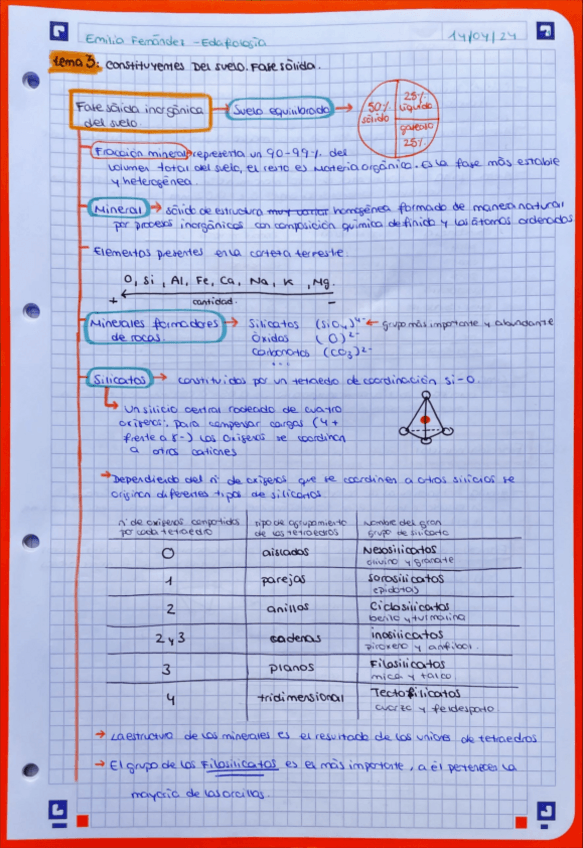 Emilia Fernández - Edafología
14/04/24
tema 3: constituyentes Del suelo. Fase sólida.
Fase sólida inorgánica → Suelo equilibrado →
del suelo.
50% sólido
25% líquido
gaseoso 25%
Fracción mineral representa un 90-99% del
volumen total del suelo, el resto es materia orgánica. Es la fase más estable
y heterogénea.
Mineral → sólido de estructura homogénea formado de manera natural
por procesos inorgánicos con composición química definida y los átomos ordenados
Elementos presentes en la corteza terrestre
O, Si, Al, Fe, Ca, Na, K, Mg.
+ ← −
cantidad.
Minerales formadores → Silicatos (SiO4)4- ← grupo más importante y abundante
de rocas. Óxidos (O)2-
Carbonatos (CO3)2-
...
Silicatos → constituidos por un tetraedo de coordinación Si-O.
Un silicio central rodeado de cuatro
oxígenos; para compensar cargas (4+
frente a 8-) los oxígenos se coordinan
a otros cationes
→ Dependiendo del nº de oxígenos que se coordinen a otros silicios se
originan diferentes tipos de silicatos
nº de oxígenos compartidos por cada tetraedro | tipo de agrupamiento de los tetraedros | Nombre del gran grupo de silicato
0 | aislados | Nesosilicatos
olivino y granate
1 | parejas | sorosilicatos
epidotas
2 | anillos | Ciclosilicatos
berilo y turmalina
2 y 3 | cadenas | inosilicatos
piroxeno y anfíbol.
3 | planos | Filosilicatos
mica y talco
4 | tridimensional | Tectosilicatos
cuarzo y feldespato
→ La estructura de los minerales es el resultado de las uniones de tetraedros
→ El grupo de los Filosilicatos es el más importante, a él pertenecen la
mayoría de las arcillas.